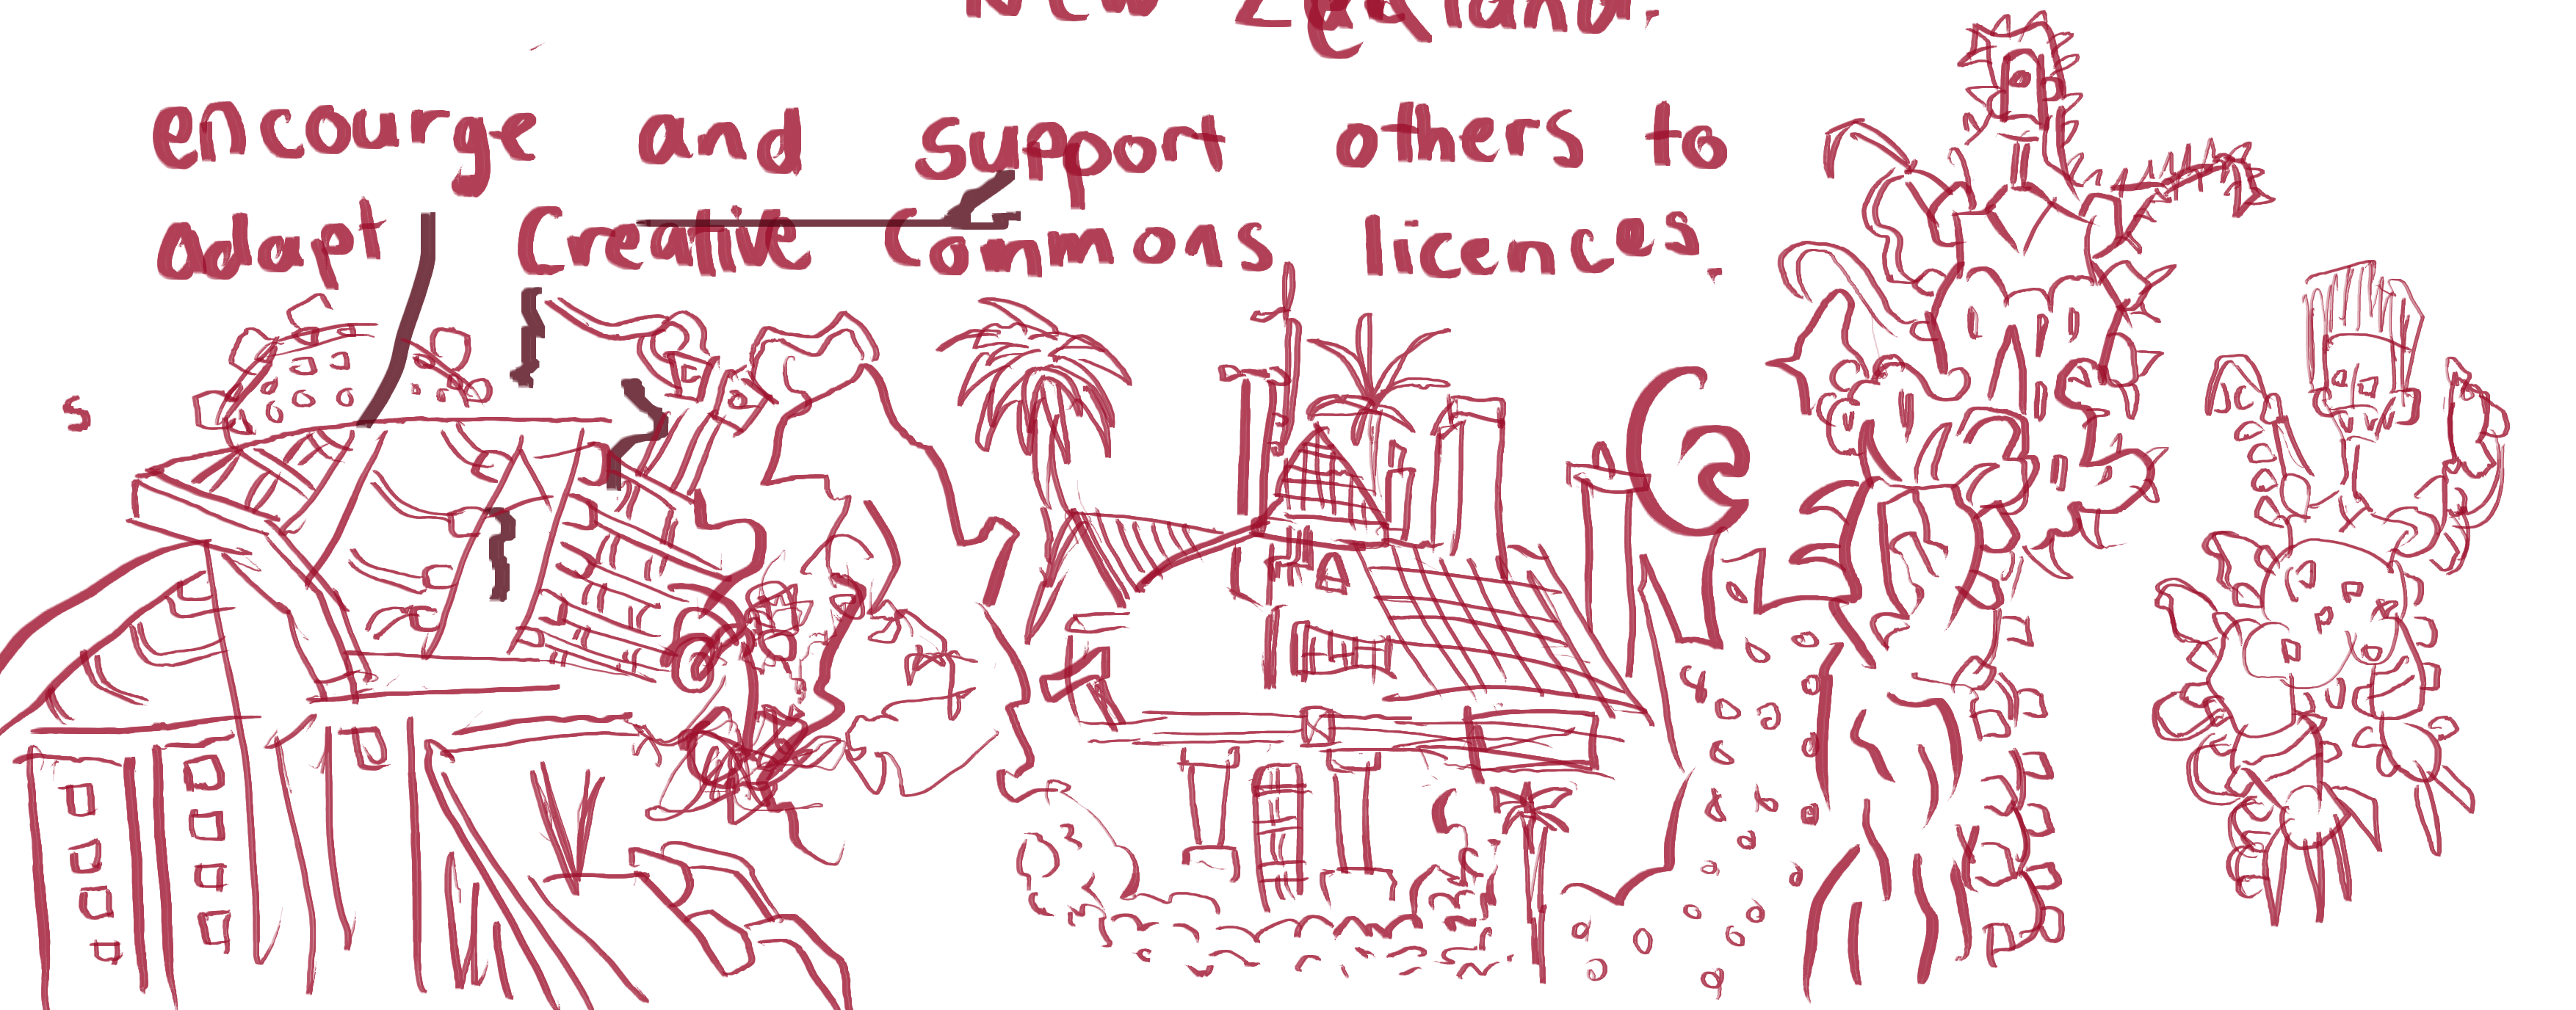 New Zealand.
encourge and support others to
adapt Creative Commons licences.
s